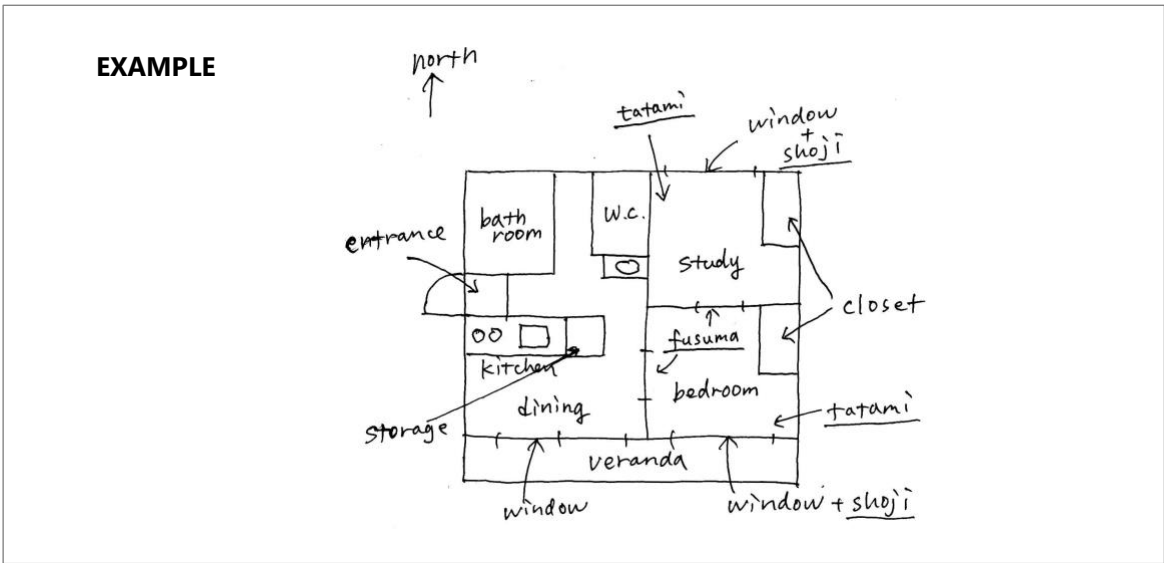 EXAMPLE
north
tatami
window
+
shoji
bath
room
W.C.
entrance
study
closet
fusuma
kitchen
bedroom
dining
tatami
storage
veranda
window
window + shoji